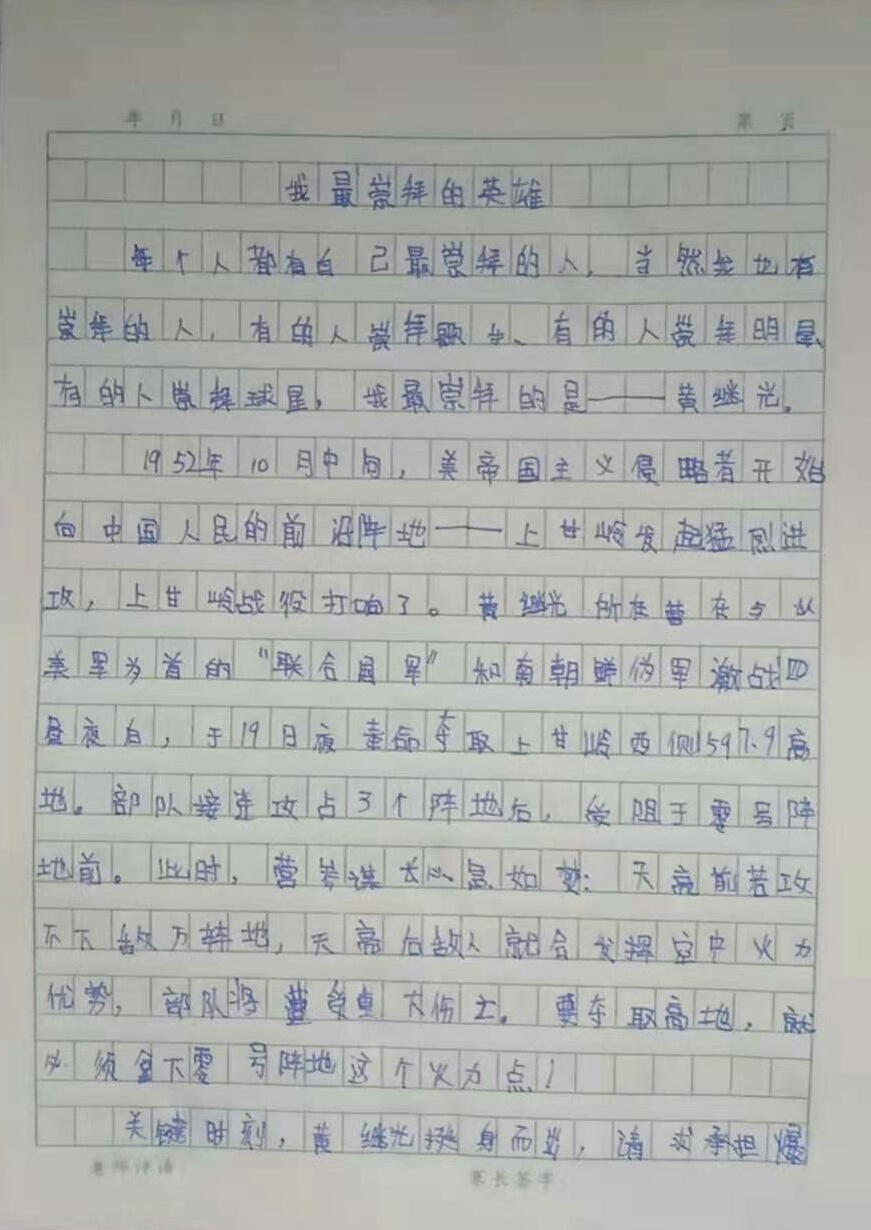 年 月 日 第 页
我最崇拜的英雄
每个人都有自己最崇拜的人,当然我也有
崇拜的人,有的人崇拜歌手、有的人崇拜明星、
有的人崇拜球星,我最崇拜的是——黄继光。
1952年10月中旬,美帝国主义侵略者开始
向中国人民的前沿阵地——上甘岭发起猛烈进
攻,上甘岭战役打响了。黄继光所在营在与以
美军为首的“联合国军”和南朝鲜伪军激战四
昼夜后,于19日夜奉命夺取上甘岭西侧597.9高
地。部队接连攻占3个阵地后,受阻于零号阵
地前。此时,营参谋长心急如焚:天亮前若攻
不下敌方阵地,天亮后敌人就会发挥空中火力
优势,部队将遭受重大伤亡。要夺取高地,就
必须拿下零号阵地这个火力点!
关键时刻,黄继光挺身而出,请求承担爆
老师评语 家长签字